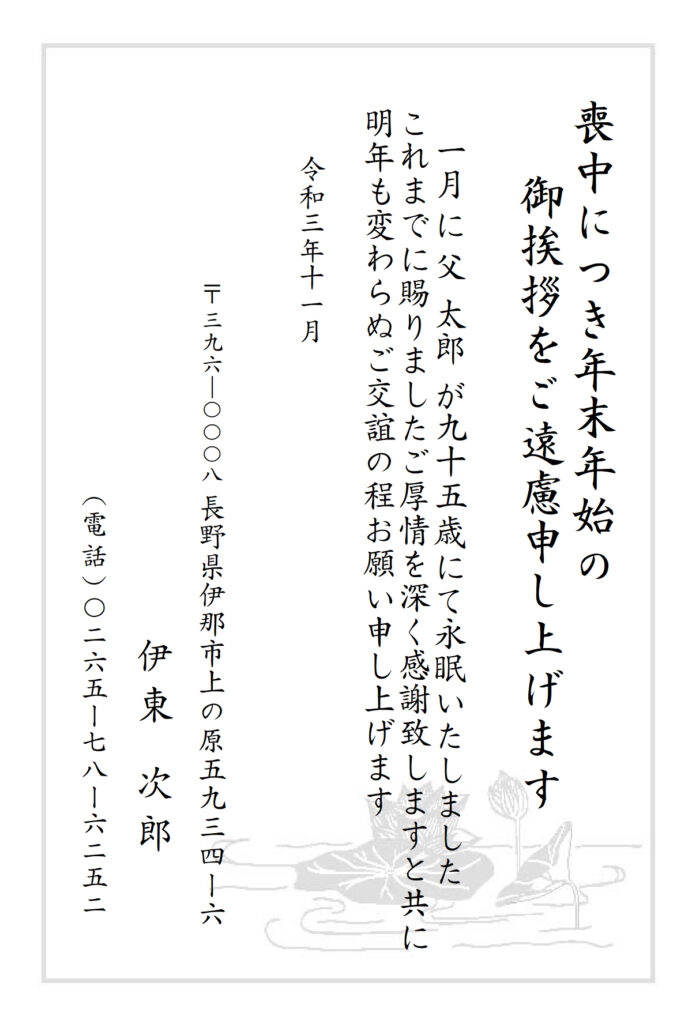 喪中につき年末年始の
御挨拶をご遠慮申し上げます
一月に父 太郎 が九十五歳にて永眠いたしました
これまでに賜りましたご厚情を深く感謝致しますと共に
明年も変わらぬご交誼の程お願い申し上げます
令和三年十一月
〒三九六―〇〇〇八 長野県伊那市上の原五九三四ー六
伊東 次郎
（電話）〇二六五ー七八ー六二五二